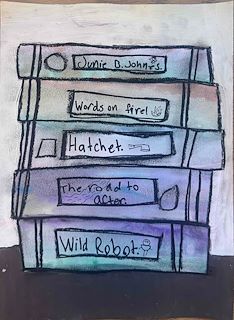 Junie B. Johns.
Words on fire!
Hatchet.
The road to
after.
Wild Robot.